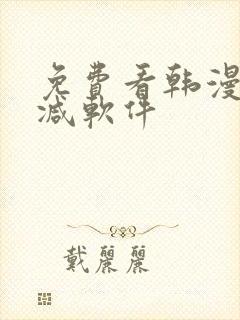 免費看韩漫
减軟件
戴麗麗